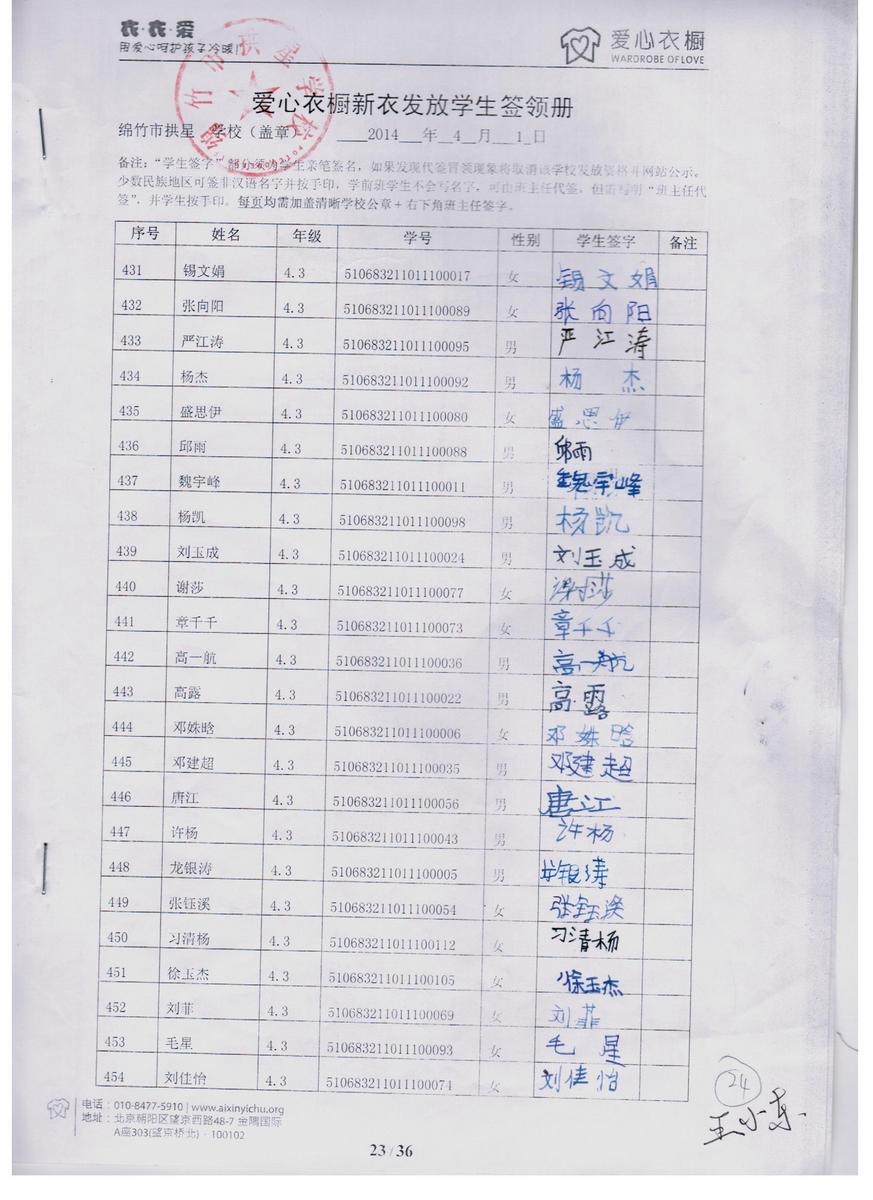 衣·衣·爱
用爱心呵护孩子冷暖!
爱心衣橱
WARDROBE OF LOVE
绵竹市拱星学校
爱心衣橱新衣发放学生签领册
绵竹市拱星 学校（盖章） 2014 年 4 月 1 日
备注：“学生签字”部分须为学生亲笔签名，如果发现代签冒领现象将取消该学校发放资格并网站公示。
少数民族地区可签非汉语名字并按手印，学前班学生不会写名字，可由班主任代签，但需写明“班主任代
签”，并学生按手印。每页均需加盖清晰学校公章+右下角班主任签字。
序号 姓名 年级 学号 性别 学生签字 备注
431 锡文娟 4.3 510683211011100017 女 锡文娟
432 张向阳 4.3 510683211011100089 女 张向阳
433 严江涛 4.3 510683211011100095 男 严江涛
434 杨杰 4.3 510683211011100092 男 杨杰
435 盛思伊 4.3 510683211011100080 女 盛思伊
436 邱雨 4.3 510683211011100088 男 邱雨
437 魏宇峰 4.3 510683211011100011 男 魏宇峰
438 杨凯 4.3 510683211011100098 男 杨凯
439 刘玉成 4.3 510683211011100024 男 刘玉成
440 谢莎 4.3 510683211011100077 女 谢莎
441 章千千 4.3 510683211011100073 女 章千千
442 高一航 4.3 510683211011100036 男 高一航
443 高露 4.3 510683211011100022 男 高露
444 邓姝晗 4.3 510683211011100006 女 邓姝晗
445 邓建超 4.3 510683211011100035 男 邓建超
446 唐江 4.3 510683211011100056 男 唐江
447 许杨 4.3 510683211011100043 男 许杨
448 龙银涛 4.3 510683211011100005 男 龙银涛
449 张钰溪 4.3 510683211011100054 女 张钰溪
450 习清杨 4.3 510683211011100112 女 习清杨
451 徐玉杰 4.3 510683211011100105 女 徐玉杰
452 刘菲 4.3 510683211011100069 女 刘菲
453 毛星 4.3 510683211011100093 女 毛星
454 刘佳怡 4.3 510683211011100074 女 刘佳怡
24
王小东
电话：010-8477-5910 | www.aixinyichu.org
地址：北京朝阳区望京西路48-7 金隅国际
A座303(望京桥北)·100102
23 / 36